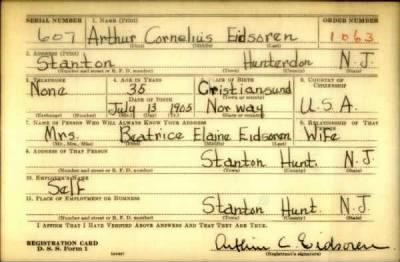 SERIAL NUMBER 1. NAME (Print) ORDER NUMBER
607 Arthur Cornelius Eidsoren 1063
(First) (Middle) (Last)
2. ADDRESS (Print)
Stanton Hunterdon N.J.
(Number and street or R. F. D. number) (Town) (County) (State)
3. TELEPHONE 4. AGE IN YEARS 5. PLACE OF BIRTH 6. COUNTRY OF CITIZENSHIP
None 35 Cristiansund
DATE OF BIRTH (Town or county)
July 13 1905 Norway U.S.A.
(Exchange) (Number) (Mo.) (Day) (Yr.) (State or country)
7. NAME OF PERSON WHO WILL ALWAYS KNOW YOUR ADDRESS 8. RELATIONSHIP OF THAT PERSON
Mrs. Beatrice Elaine Eidsoren Wife
(Mr., Mrs., Miss) (First) (Middle) (Last)
9. ADDRESS OF THAT PERSON
Stanton Hunt. N.J.
(Number and street or R. F. D. number) (Town) (County) (State)
10. EMPLOYER'S NAME
Self
11. PLACE OF EMPLOYMENT OR BUSINESS
Stanton Hunt. N.J.
(Number and street or R. F. D. number) (Town) (County) (State)
I AFFIRM THAT I HAVE VERIFIED ABOVE ANSWERS AND THAT THEY ARE TRUE.
REGISTRATION CARD
D. S. S. Form 1 (over) Arthur C. Eidsoren
(Registrant's signature)